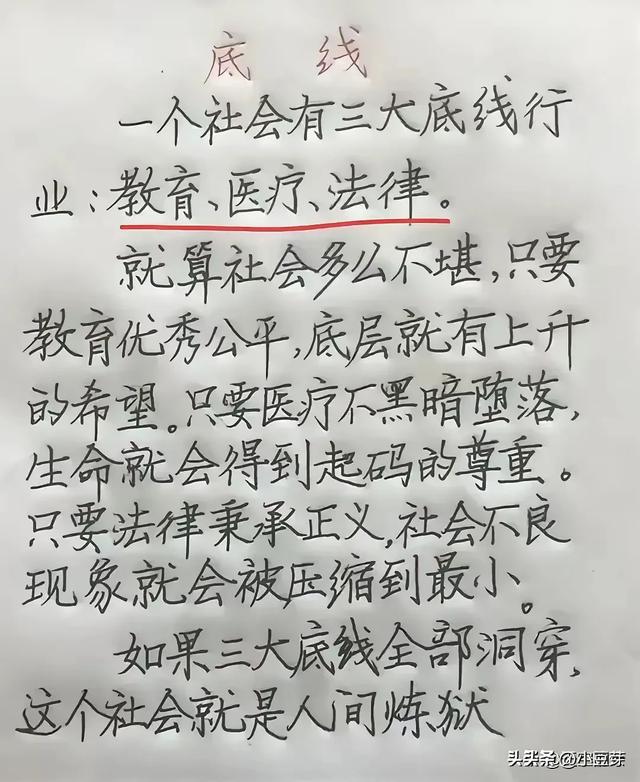 底 线
一个社会有三大底线行
业：教育、医疗、法律。
就算社会多么不堪，只要
教育优秀公平，底层就有上升
的希望。只要医疗不黑暗堕落，
生命就会得到起码的尊重。
只要法律秉承正义，社会不良
现象就会被压缩到最小。
如果三大底线全部洞穿，
这个社会就是人间炼狱
头条 @小豆芽